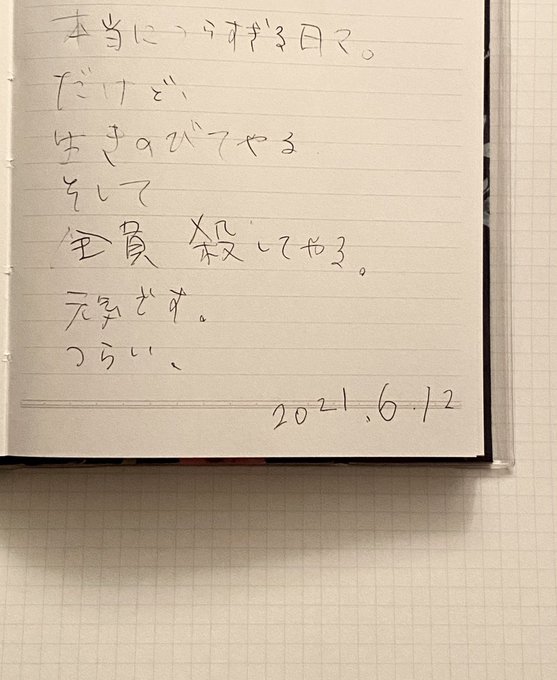 本当につらすぎる日々。
だけど、
生きのびてやる
そして
全員 殺してやる。
元気です。
つらい、
2021.6.12